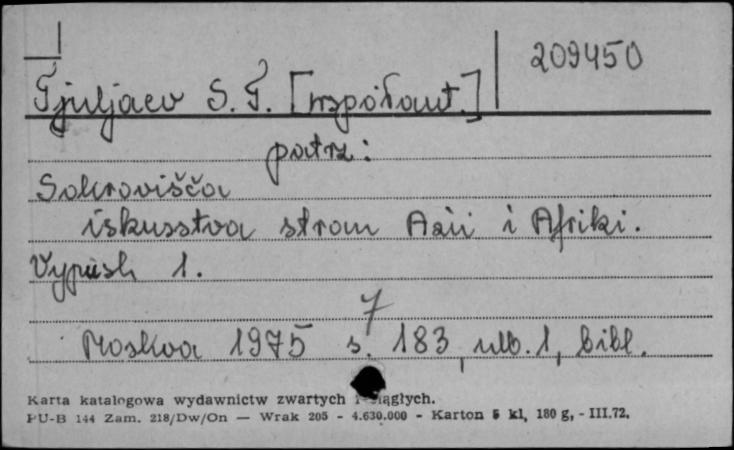 209450
Tjuljaev S. I. [współaut.]
patrz:
Sokrovišča
iskusstva stran Azii i Afriki.
Vypusk 1.
7
Moskva 1975 s. 183, nlb. 1, bibl.
Karta katalogowa wydawnictw zwartych i ciągłych.
PU-B 144 Zam. 218/Dw/On — Wrak 205 - 4.630.000 - Karton 5 kl, 180 g, - III.72.